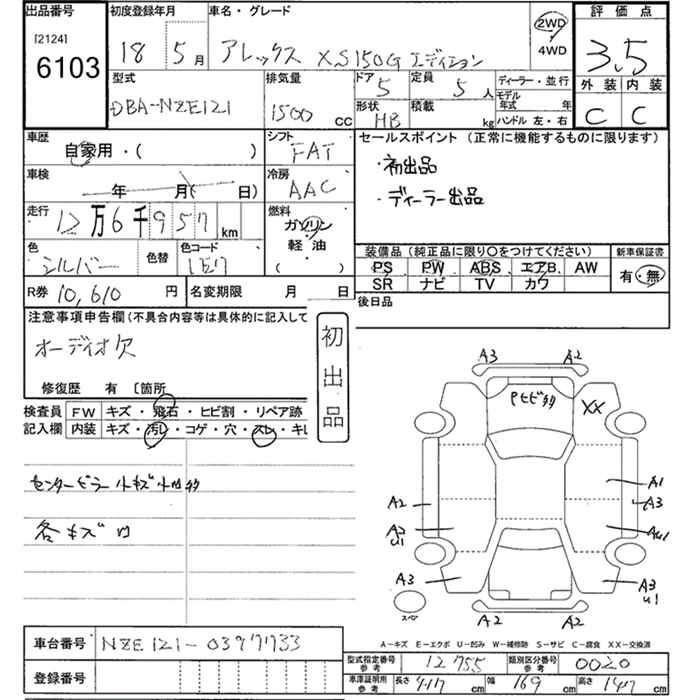 出品番号
[2124]
6103
初度登録年月
18 5月
車名・グレード
アレックス XS150G エディション
2WD
・
4WD
評価点
3.5
外装 内装
C C
型式
DBA-NZE121
排気量
1500 cc
ドア
5
定員
5人
形状
HB
積載
kg
ディーラー・並行
モデル
年式 年
ハンドル 左・右
車歴
自家用・( )
シフト
FAT
車検
年 月( 日)
冷房
AAC
走行
12万6千957km
燃料
ガソリン
軽油
( )
色
シルバー
色替
色コード
1E7
R券 10,610円
名変期限 月 日
セールスポイント(正常に機能するものに限ります)
・初出品
・ディーラー出品
装備品(純正品に限り○をつけてください)
PS PW ABS エアB. AW
SR ナビ TV カワ
新車保証書
有・無
後日品
注意事項申告欄(不具合内容等は具体的に記入して
オーディオ欠
修復歴 有 〔箇所
初出品
検査員
記入欄
FW キズ・飛石・ヒビ割・リペア跡
内装 キズ・汚レ・コゲ・穴・スレ・キレ
センターピラー小キズ小凹
各キズ凹
A3 A2
XX
A1
A3
A2
A2
U1
AU1
A3
A3
U1
スペア
A2 A2
A-キズ E-エクボ U-凹み W-補修跡 S-サビ C-腐食 XX-交換済
車台番号 NZE121-0397733
登録番号
型式指定番号
参考
12755
類別区分番号
参考
0020
車庫証明用
参考
長さ 417cm 幅 169cm 高さ 147cm